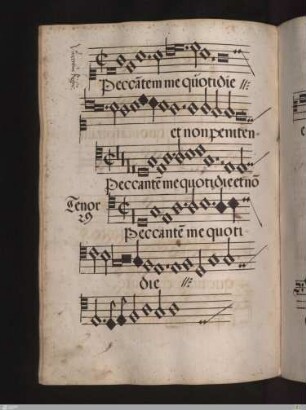 Peccātem me quotidie ij:
et non peniten-
Peccantē me quotidie et nō
Tenor
29
Peccantē me quoti
die ij: